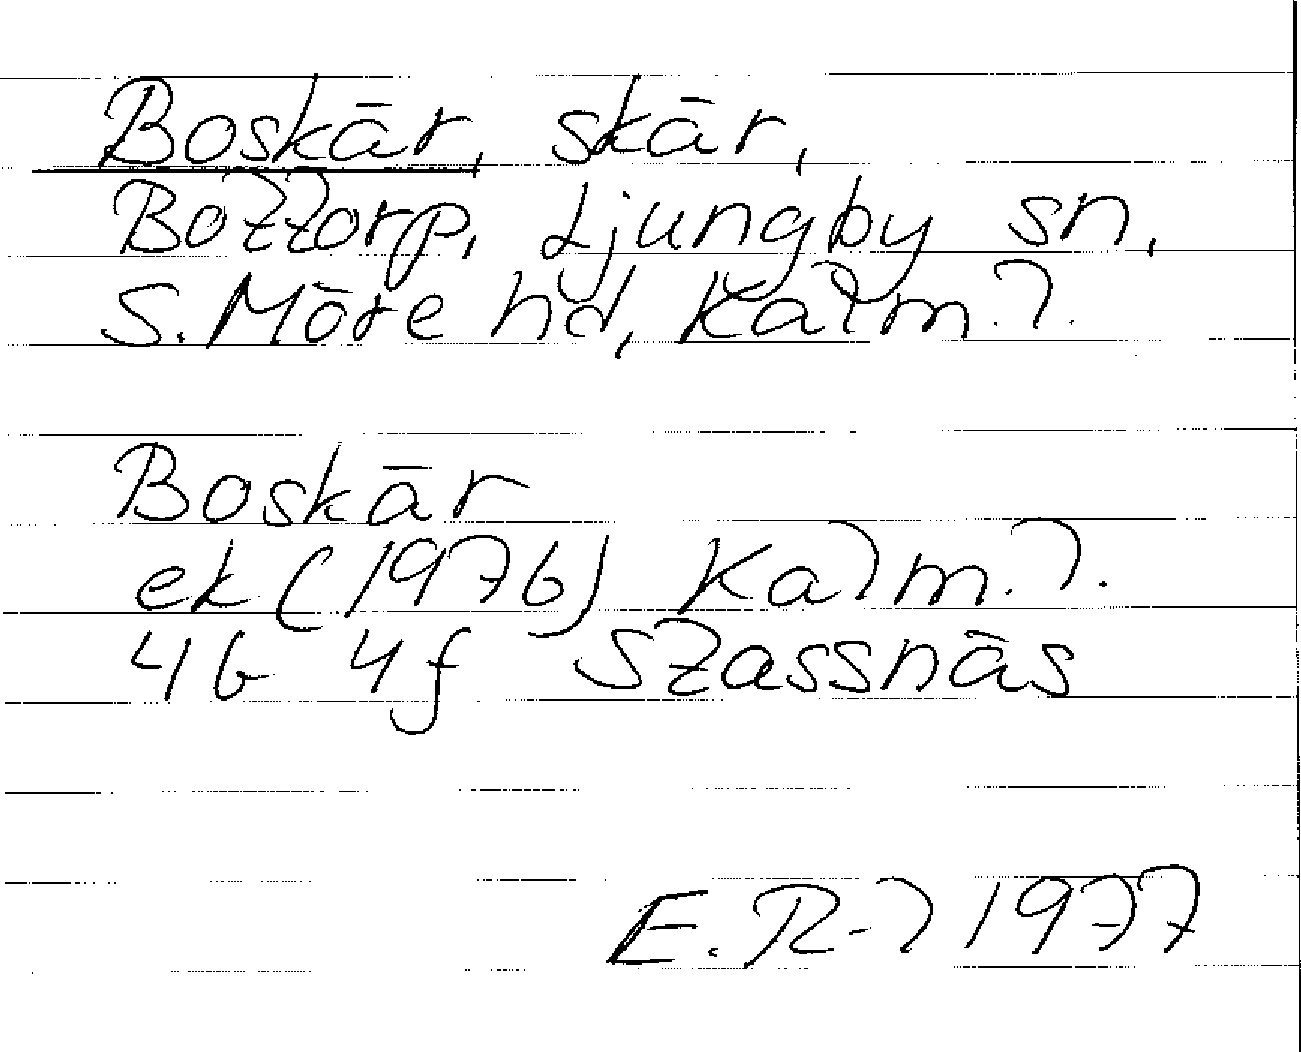 Boskär, skär,
Bottorp, Ljungby sn,
S. Möre hd, Kalm. l.
Boskär
ek (1976) Kalm. l.
4G 4f Stassnäs
E. R-l 1977